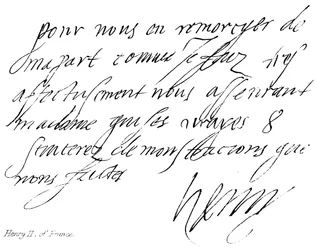 pour vous en remercyer de
ma part comme Je faiz tres
affectueusement vous asseurant
madame que les vrayes &
sinceres demonstracions que
vous faictes
henry
Henry II. of France.